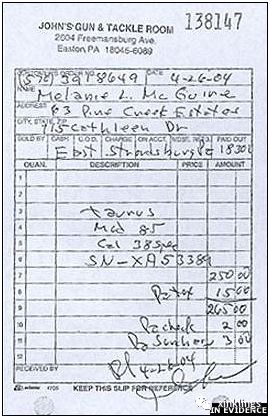 JOHN'S GUN & TACKLE ROOM 138147
2004 Freemansburg Ave.
Easton, PA 18045-6089
(570) 3918649 DATE 4-26-04
NAME Melanie L. McGuire
ADDRESS 63 Pine Creek Estates
CITY, STATE, ZIP 715 Cathleen Dr
SOLD BY CASH C.O.D. CHARGE ON ACCT. MDSE. RETD. PAID OUT
East Stroudsburg Pa 18301
QUAN. DESCRIPTION PRICE AMOUNT
1
2
3 Taurus
4 Mod 85
5 Cal 38 Spec
6 SN-XA53389
7 250 00
8 Pa tax 15 00
9 265 00
10 Pa check 2 00
11 Pa Surcharge 3 00
12
RECEIVED BY Pd 4-26-04
4705 KEEP THIS SLIP FOR REFERENCE
IN EVIDENCE